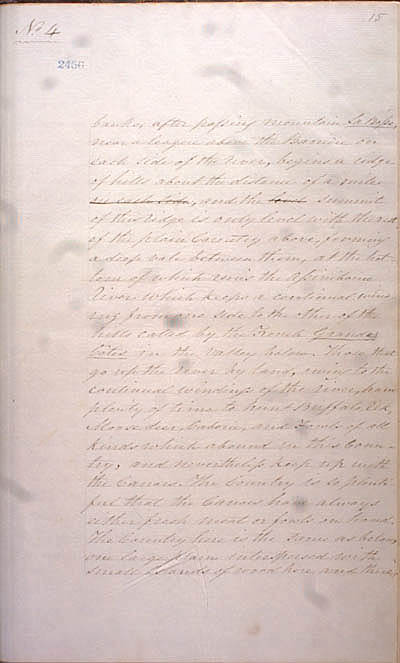 15
No 4
2456
banks, after passing mountain La
near a league above the Barrier on
each side of the river, begins a ridge
of hills about the distance of a mile
on each side, and the level summit
of this ridge is only level with the rest
of the plain Country above, forming
a deep vale between them, at the bot-
tom of which runs the Assiniboine
River which keeps a continual
from one side to the other of the
hills called by the French Grandes
Cotes in the valley below. Those that
go up the River by land, owing to the
continual windings of the river, have
plenty of time to hunt Buffalo, Elk,
Moose deer, Cabois, and Fowls of all
kinds which abound in this Coun-
try, and nevertheless keep up with
the Canoes. The Country is so plenti-
ful that the Canoes have always
either fresh meat or fowls on hand.
The Country here is the same as below
one large plain interspersed with
small Islands of wood here and there,